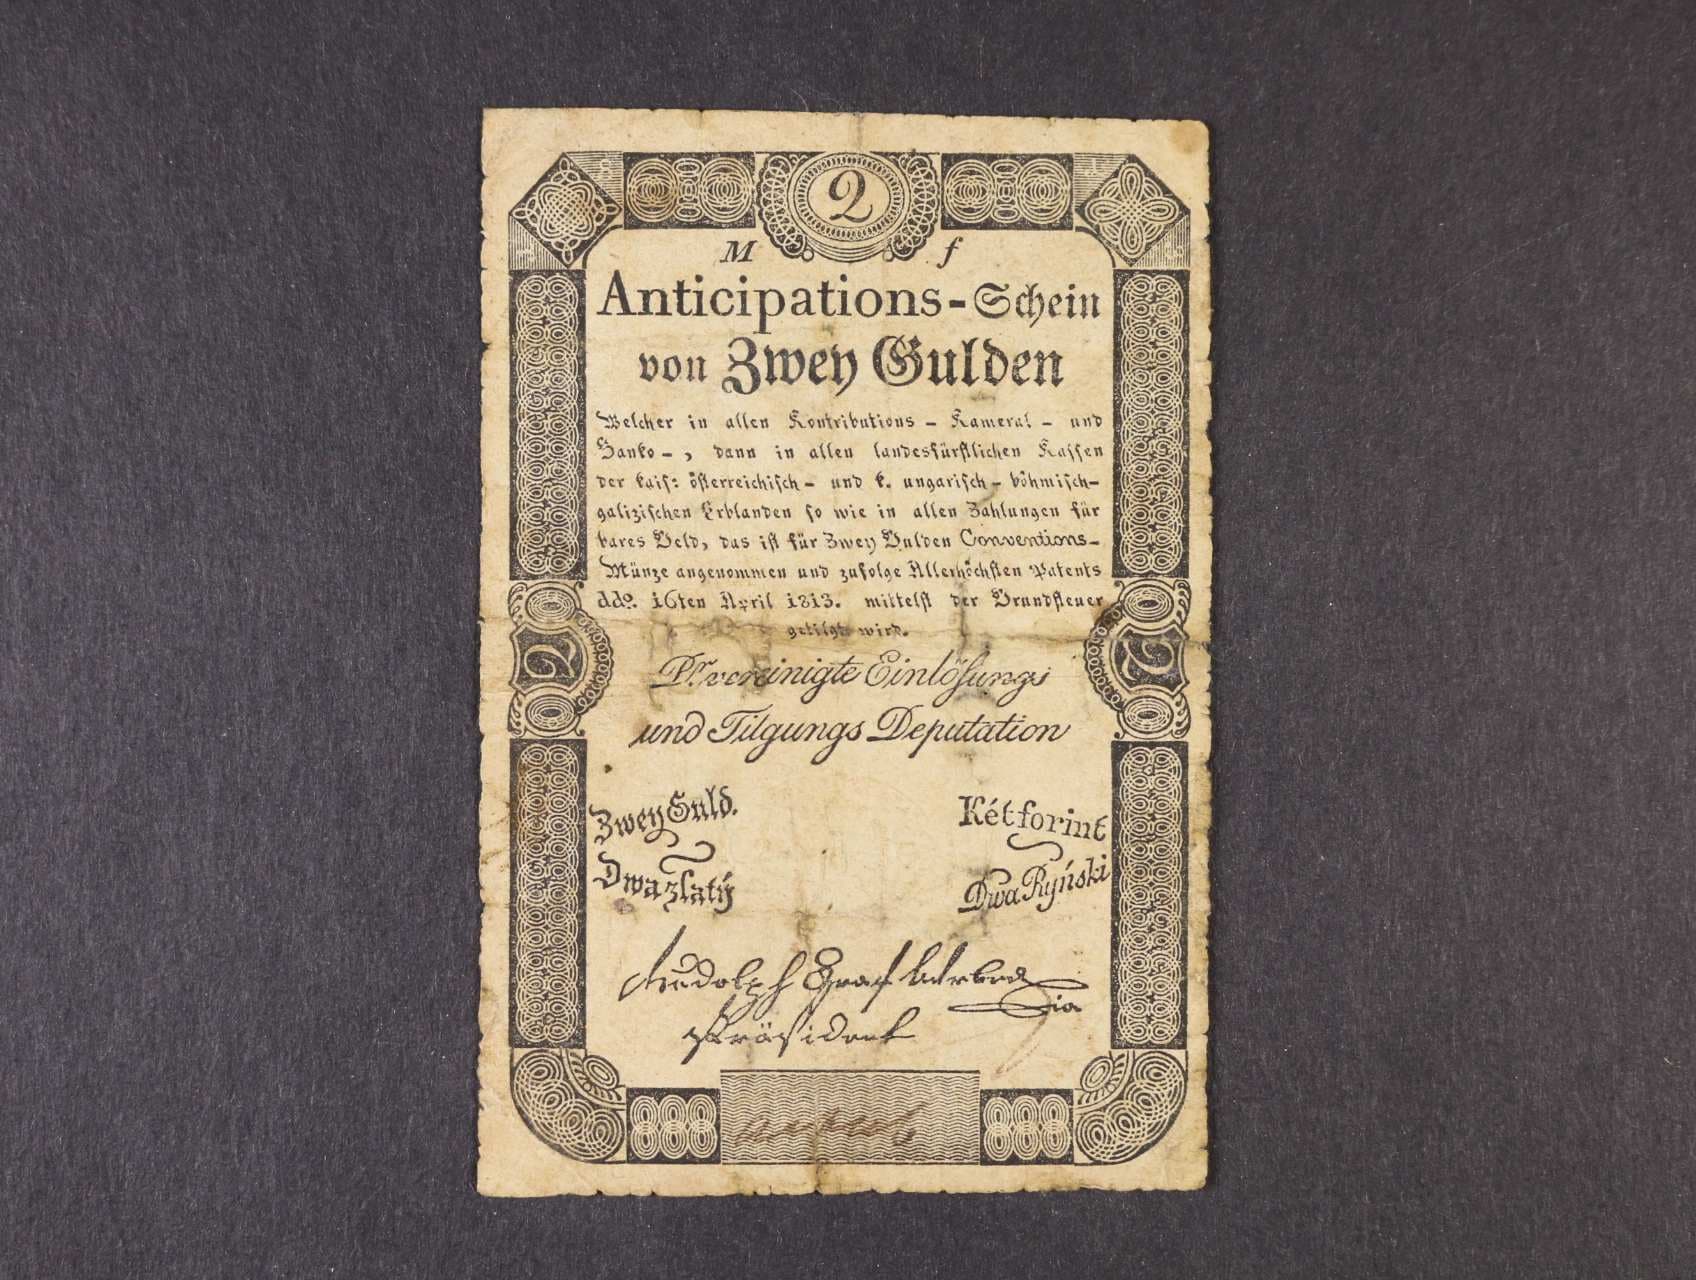 2
M f
Anticipations-Schein
von Zwey Gulden
Welcher in allen Kontributions - Kameral - und
Banko -, dann in allen landesfürstlichen Kassen
der kais: österreichisch - und k. ungarisch - böhmisch-
galizischen Erblanden so wie in allen Zahlungen für
bares Geld, das ist für Zwey Gulden Conventions-
Münze angenommen und zufolge Allerhöchsten Patents
ddo. 16ten April 1813. mittelst der Grundsteuer
getilgt wird.
2 2
Pr. vereinigte Einlösungs
und Tilgungs Deputation
Zwey Guld. Két forint
Dwa zlatý Dwa Ryński
Rudolph Graf
Präsident